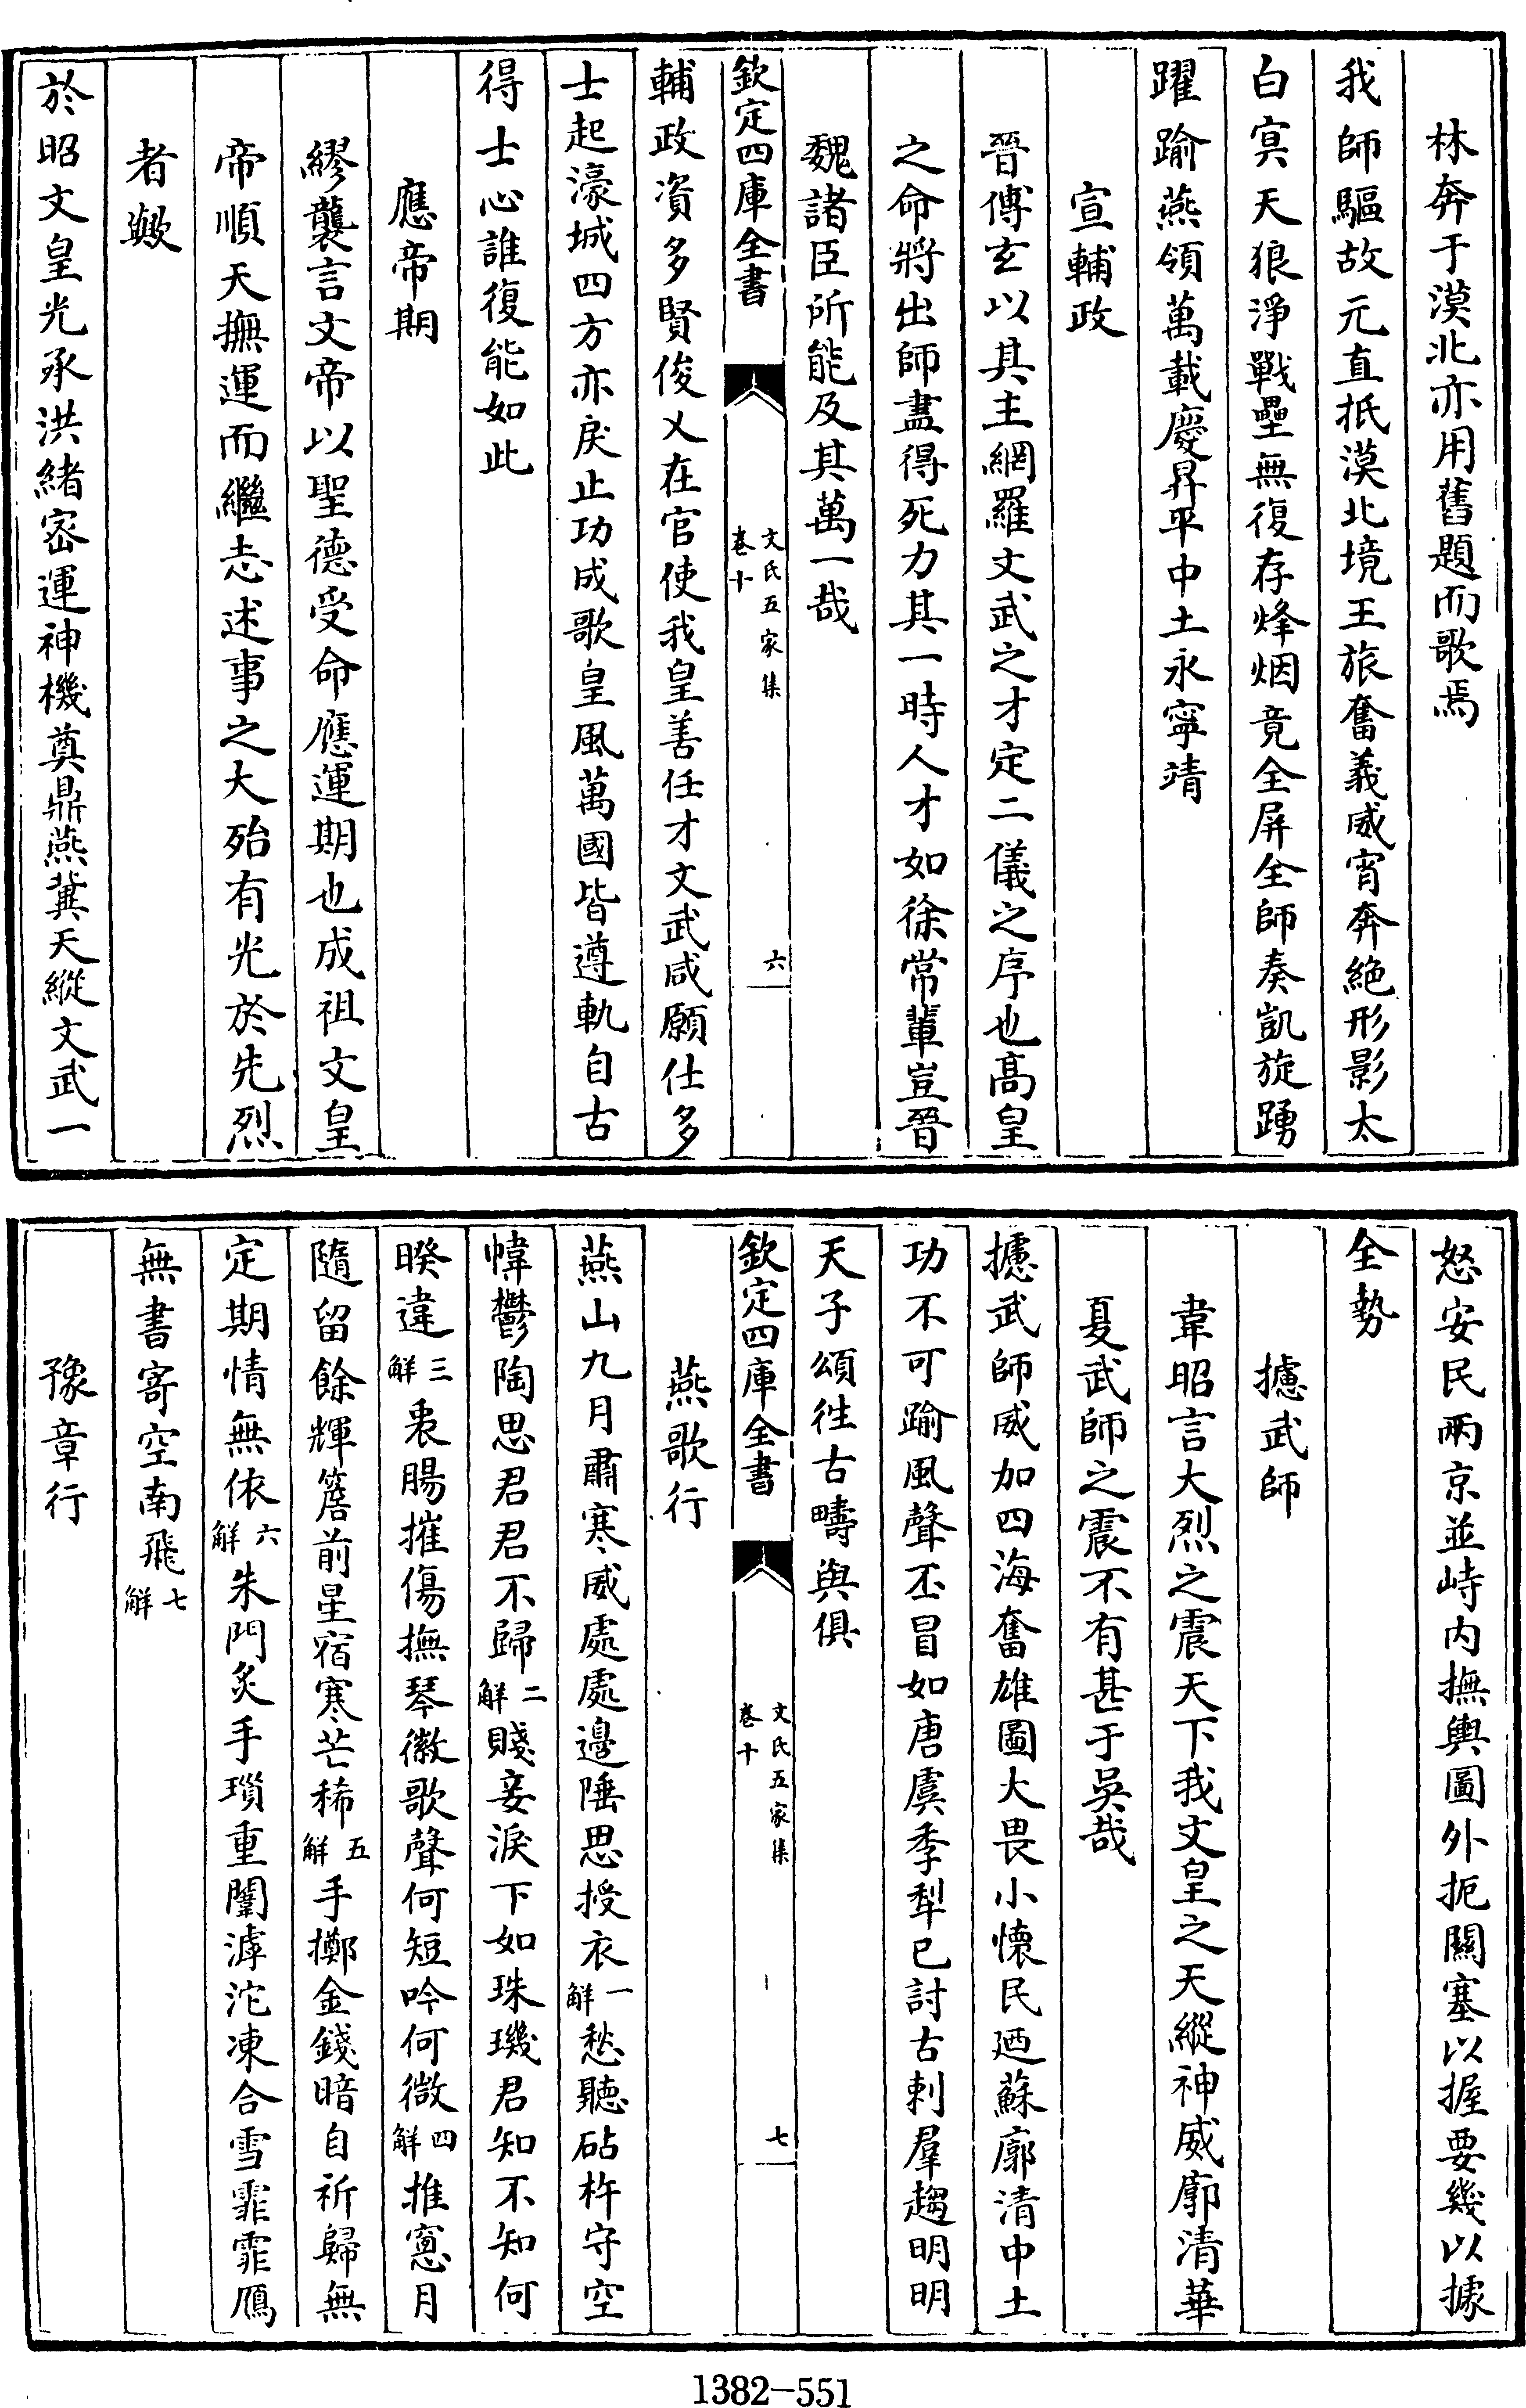 林奔于漠北亦用舊題而歌焉
我師驅故元直抵漠北境王旅奮義威宵奔絶形影太
白㝠天狼淨戰壘無復存烽烟竟全屏全師奏凱旋踴
躍踰燕領萬載慶昇平中土永寧靖
宣輔政
晉傅玄以其主網羅文武之才定二儀之序也髙皇
之命將出師盡得死力其一時人才如徐常輩豈晉
魏諸臣所能及其萬一哉
欽定四庫全書
文氏五家集
卷十
六
輔政資多賢俊乂在官使我皇善任才文武咸願仕多
士起濠城四方亦戾止功成歌皇風萬國皆遵軌自古
得士心誰復能如此
應帝期
繆襲言文帝以聖德受命應運期也成祖文皇
帝順天撫運而繼志述事之大殆有光於先烈
者歟
於昭文皇光承洪緒宻運神機奠鼎燕冀天縱文武一
怒安民兩京並峙内撫輿圖外扼關塞以握要幾以據
全勢
攄武師
韋昭言大烈之震天下我文皇之天縱神威廓清華
夏武師之震不有甚于吳哉
攄武師威加四海奮雄圖大畏小懷民廼蘇廓清中土
功不可踰風聲丕冒如唐虞季犁已討古剌羣趨明明
天子頌徃古疇與俱
欽定四庫全書
文氏五家集
卷十
七
燕歌行
燕山九月肅寒威處處邉陲思授衣一解愁聽砧杵守空
幃鬱陶思君君不歸二解賤妾淚下如珠璣君知不知何
暌違三解衷腸摧傷撫琴徽歌聲何短吟何微四解推窻月
隨留餘輝簷前星宿寒芒稀五解手擲金錢暗自祈歸無
定期情無依六解朱門炙手瑣重闈滹沱凍合雪霏霏鴈
無書寄空南飛七解
豫章行
1382-551